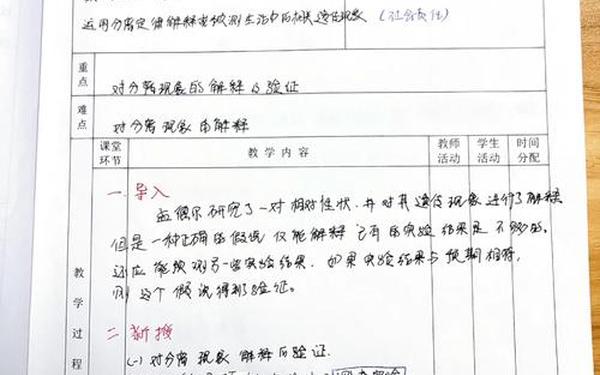 运用分离定律解释或预测生活中的相关遗传现象 (社会责任)
重点
对分离现象的解释及验证
难点
对分离现象的解释
课堂环节
教学内容
教师活动
学生活动
时间分配
一. 导入
孟德尔研究了一对相对性状，并对其遗传现象进行了解释
但是一种正确的假说仅能解释已有的实验结果是不够的，
还应能预测另一些实验结果，如果实验结果与预期相符，
则这个假说得到验证。
二 新授
(一) 对分离现象解释的验证
教学过程